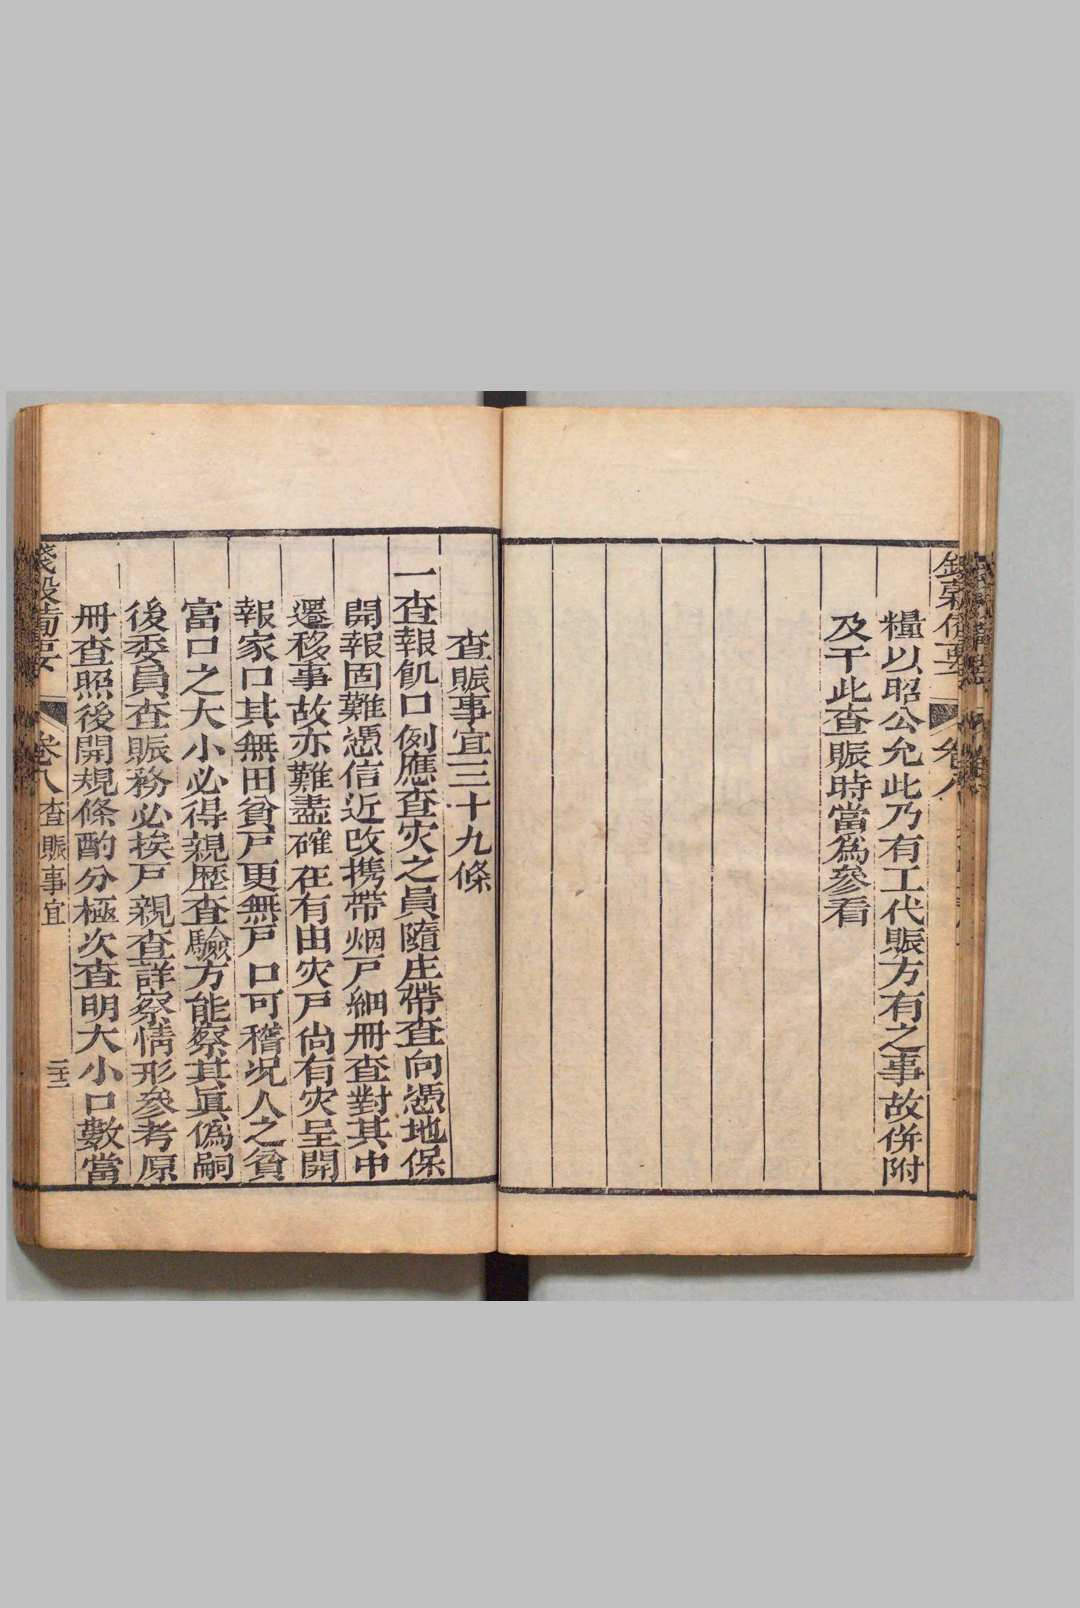 糧以昭公允此乃有工代賑方有之事故併附
及于此查賑時當為參看
查賑事宜三十九條
一查報飢口例應查灾之員隨庄帶查向憑地保
開報固難憑信近改携帶烟戶細冊查對其中
遷移事故亦難盡確在有由灾戶尙有灾呈開
報家口其無田貧戶更無戶口可稽况人之貧
富口之大小必得親歷查驗方能察其眞偽嗣
後委員查賑務必挨戶親查詳察情形參考原
冊查照後開規條酌分極次查明大小口數當
錢穀備要
卷八
查賑事宜